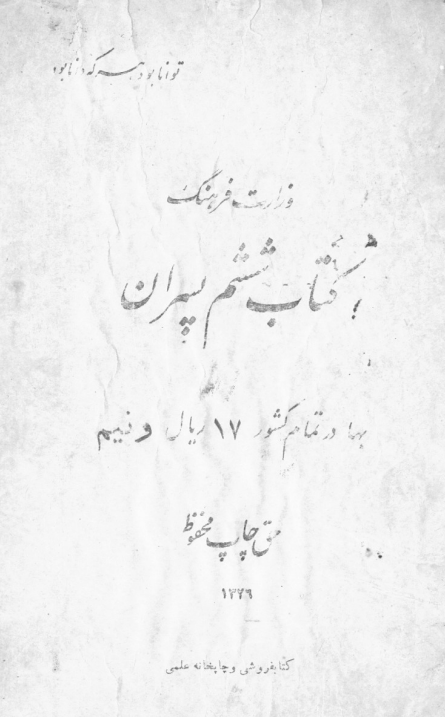 توانا بود هر که دانا بود
وزارت فرهنگ
کتاب ششم پسران
بها در تمام کشور ۱۷ ریال و نیم
حق چاپ محفوظ
۱۳۲۶
کتابفروشی و چاپخانه علمی